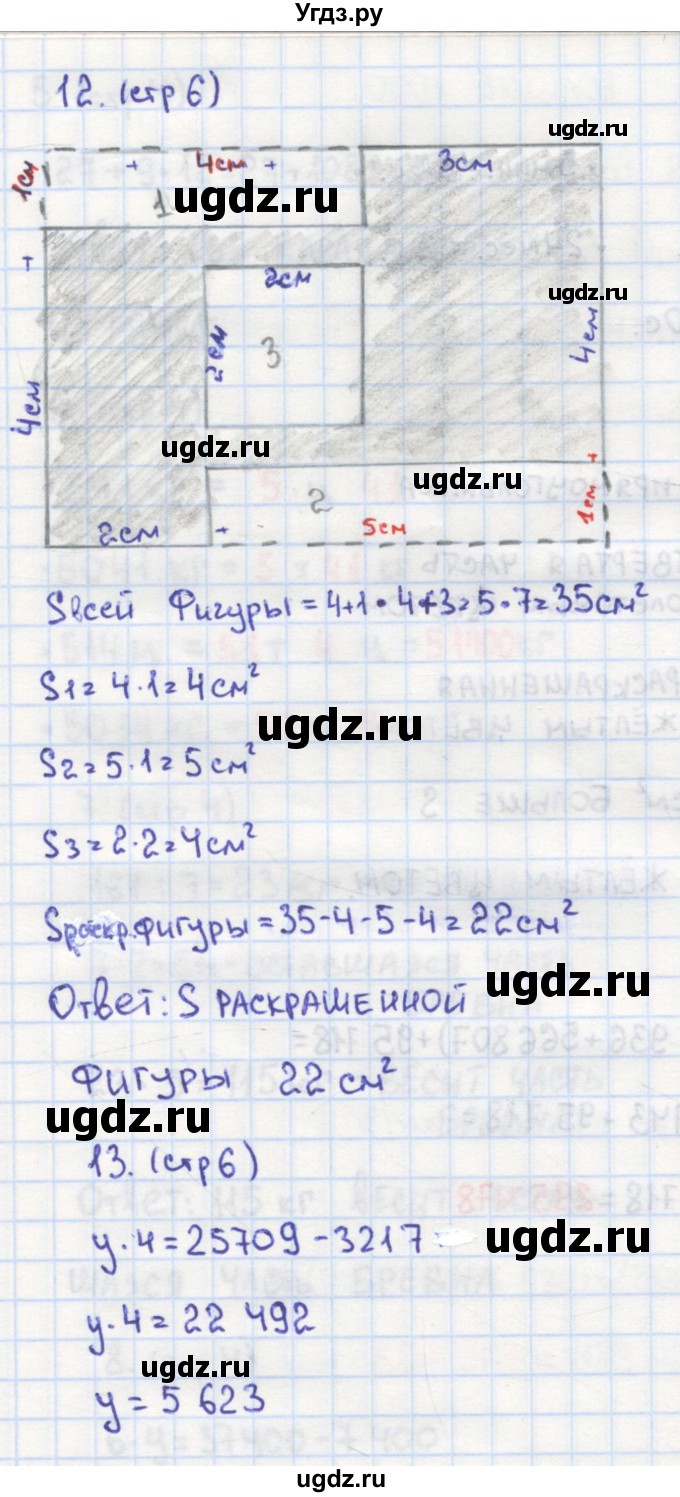 Угдз.ру
12. (стр 6)
ugdz.ru
1см
4см
3см
1
ugdz.ru
ugdz.ru
2см
2см
3
4см
4см
ugdz.ru
ugdz.ru
2
1см
2см
5см
Sвсей Фигуры = 4+1·4+3=5·7=35см²
S1=4·1=4см²
ugdz.ru
S2=5·1=5см²
S3=2·2=4см²
Sраскр.фигуры=35-4-5-4=22см²
ugdz.ru
Ответ: S РАСКРАШЕННОЙ
ФИГУРЫ 22 см²
ugdz.ru
13. (стр6)
y·4=25709-3217
ugdz.ru
y·4=22 492
ugdz.ru
y=5 623
ugdz.ru